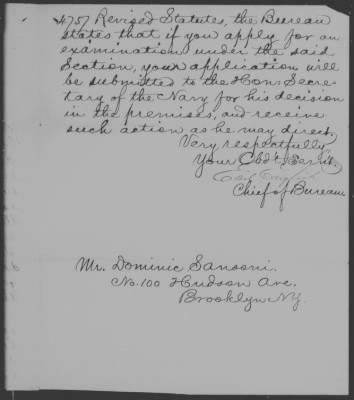 4757 Revised Statutes, the Bureau
states that if you apply for an
examination under the said
Section, your application will
be submitted to the Hon: Secre-
tary of the Navy for his decision
in the premises, and receive
such action as he may direct.
Very respectfully
Your Obdt. Servt.
Chief of Bureau.
Mr. Dominic Sansoni.
No. 100 Hudson Ave.
Brooklyn N.Y.